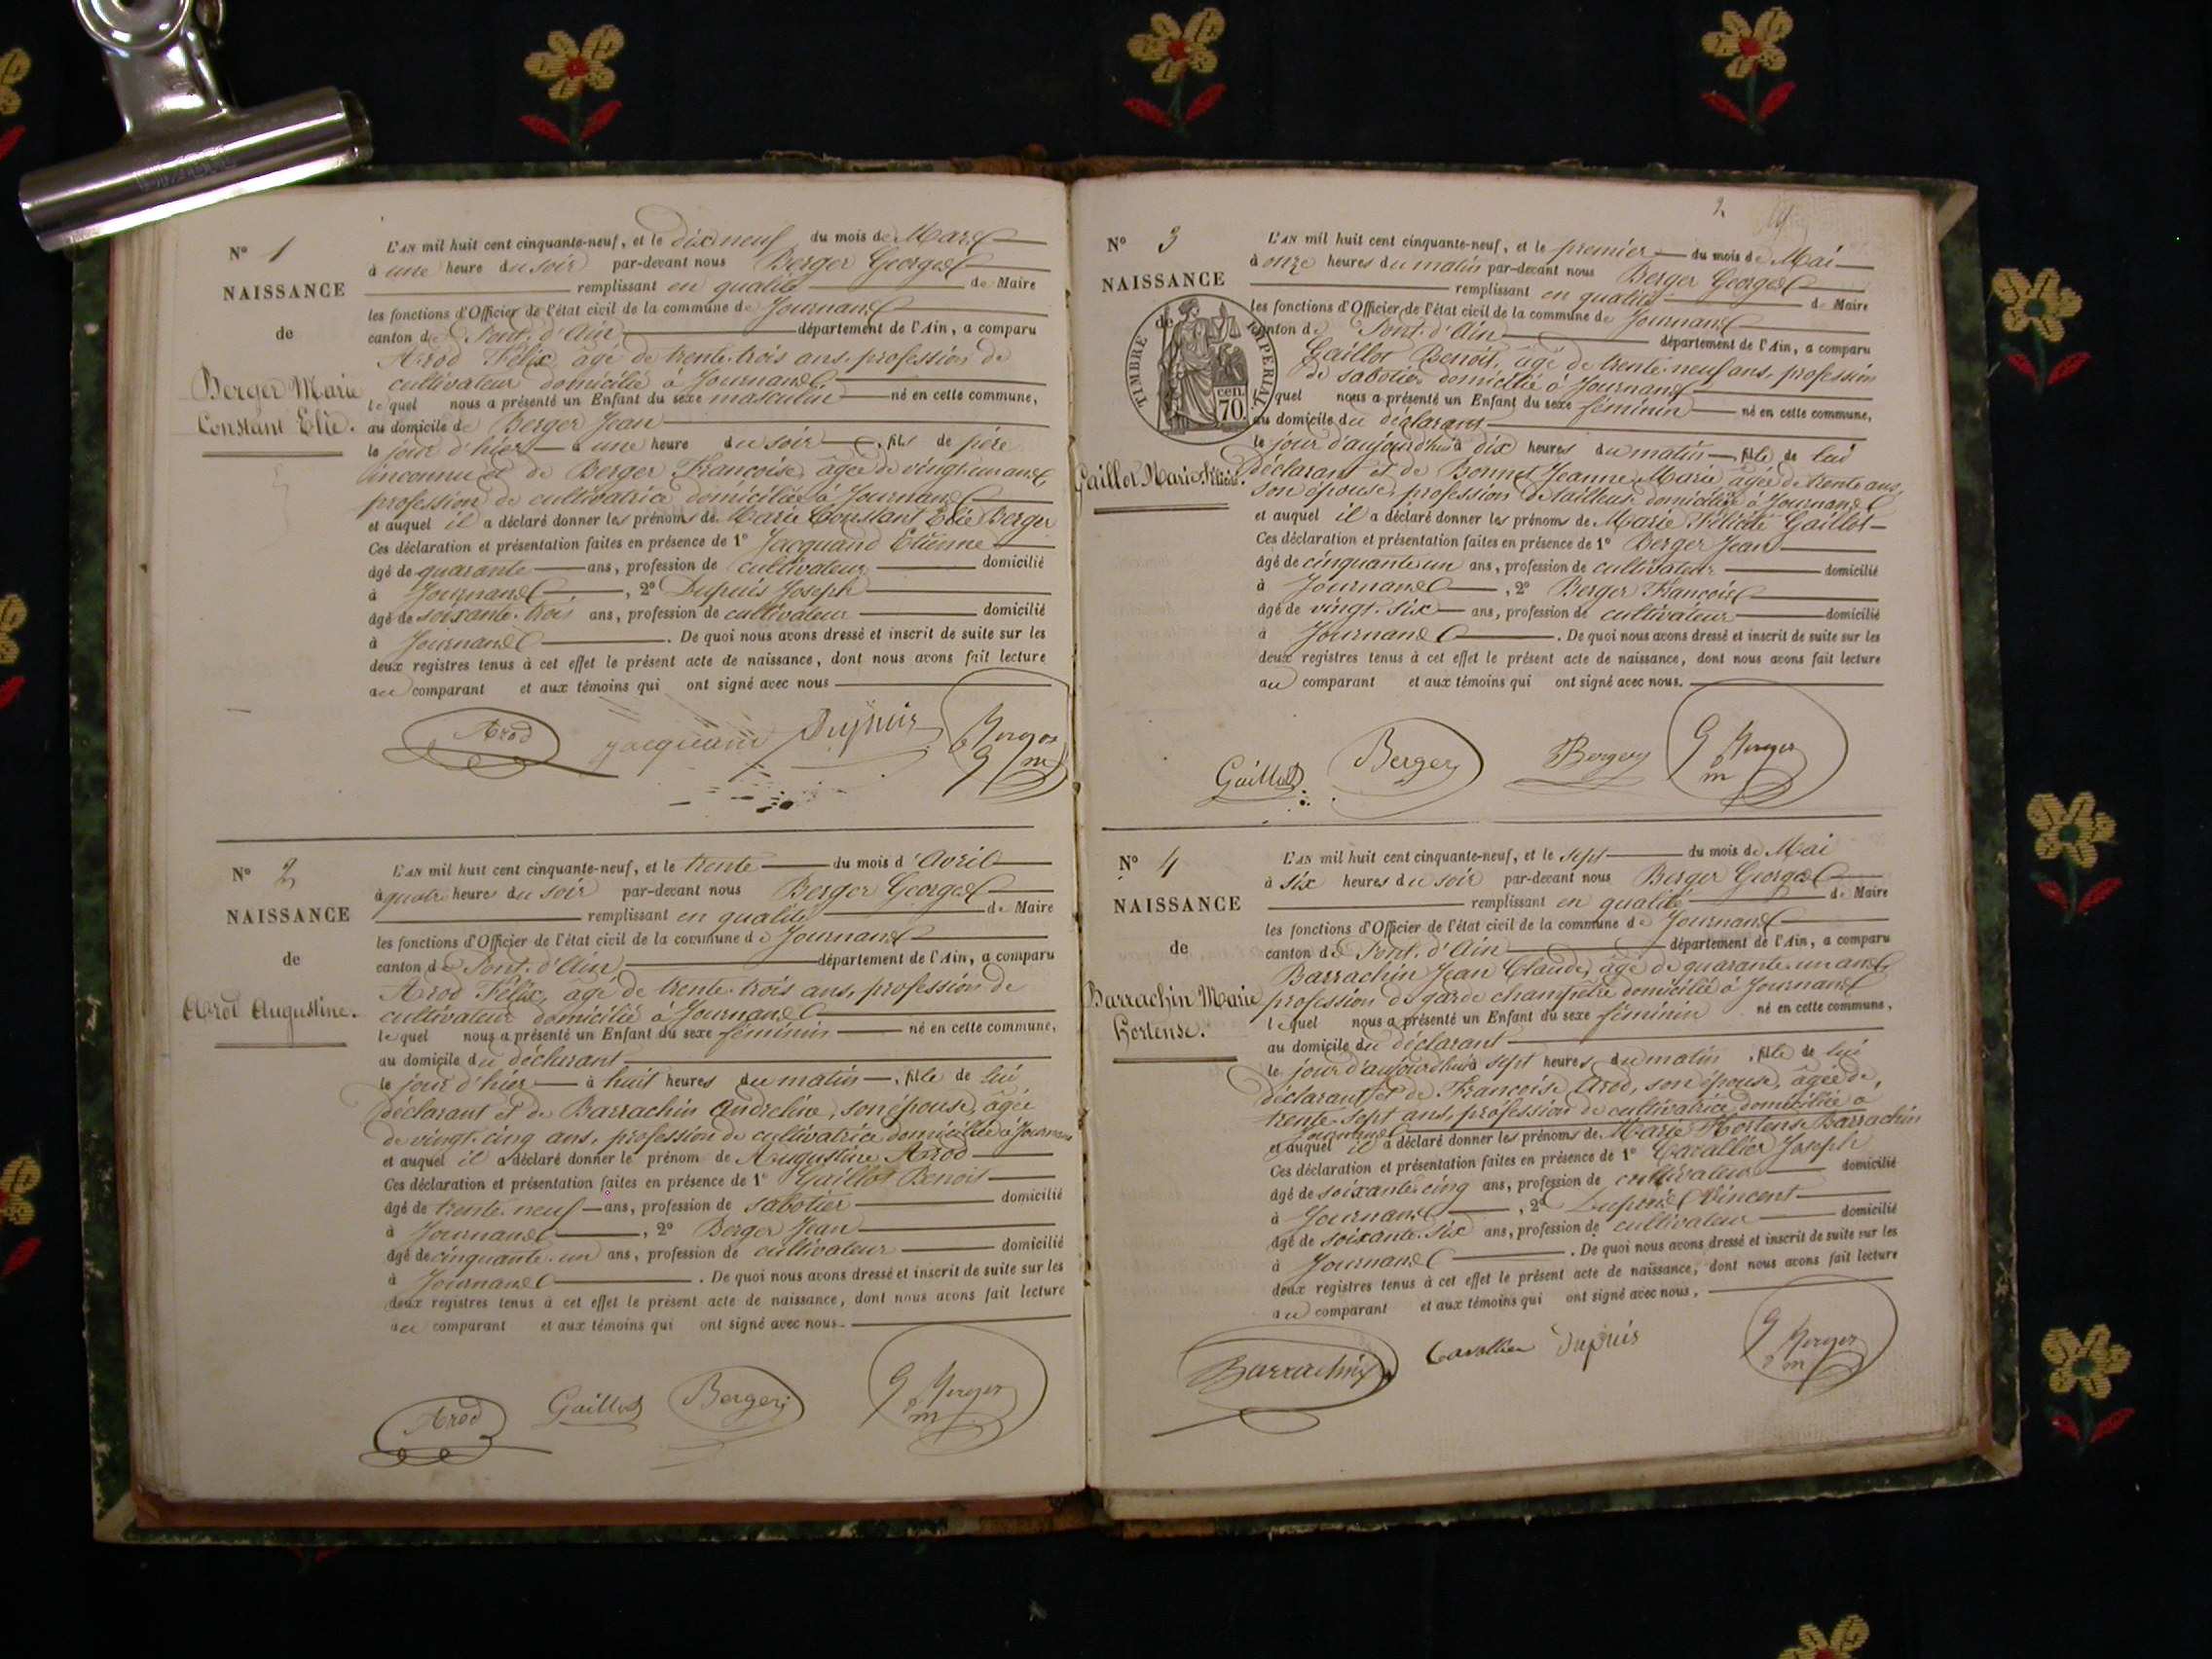 N° 1
NAISSANCE
de
Berger Marie
Constant Elie.
L'AN mil huit cent cinquante-neuf, et le dix neuf du mois de Mars
à une heure du soir par-devant nous Berger Georges
remplissant en qualité de Maire
les fonctions d'Officier de l'état civil de la commune de Journans
canton de Pont. d'Ain département de l'Ain, a comparu
Arod Félix, âgé de trente. trois ans, profession de
cultivateur domicilié à Journans,
lequel nous a présenté un Enfant du sexe masculin né en cette commune,
au domicile de Berger Jean
le jour d'hier à une heure du soir, fils de père
inconnu et de Berger Françoise, âgée de vingt-un ans
profession de cultivatrice domiciliée à Journans
et auquel il a déclaré donner les prénoms de Marie Constant Elie Berger
Ces déclaration et présentation faites en présence de 1° Jacquand Etienne
âgé de quarante ans, profession de cultivateur domicilié
à Journans, 2° Dupuis Joseph
âgé de soixante. trois ans, profession de cultivateur domicilié
à Journans. De quoi nous avons dressé et inscrit de suite sur les
deux registres tenus à cet effet le présent acte de naissance, dont nous avons fait lecture
au comparant et aux témoins qui ont signé avec nous
Arod Jacquand Dupuis G Berger m
N° 2
NAISSANCE
de
Arod Augustine.
L'AN mil huit cent cinquante-neuf, et le trente du mois d'Avril
à quatre heures du soir par-devant nous Berger Georges
remplissant en qualité de Maire
les fonctions d'Officier de l'état civil de la commune de Journans
canton de Pont. d'Ain département de l'Ain, a comparu
Arod Félix, âgé de trente. trois ans, profession de
cultivateur domicilié à Journans
lequel nous a présenté un Enfant du sexe féminin né en cette commune,
au domicile du déclarant
le jour d'hier à huit heures du matin, fille de lui
déclarant et de Barrachin Andreline, son épouse, âgée
de vingt. cinq ans, profession de cultivatrice domiciliée à Journans
et auquel il a déclaré donner le prénom de Augustine Arod
Ces déclaration et présentation faites en présence de 1° Gaillot Benoit
âgé de trente. neuf ans, profession de sabotier domicilié
à Journans, 2° Berger Jean
âgé de cinquante. un ans, profession de cultivateur domicilié
à Journans. De quoi nous avons dressé et inscrit de suite sur les
deux registres tenus à cet effet le présent acte de naissance, dont nous avons fait lecture
au comparant et aux témoins qui ont signé avec nous.
Arod Gaillot Berger G Berger m
N° 3
NAISSANCE
de
TIMBRE IMPERIAL
70 cen.
Gaillot Marie Félicité.
L'AN mil huit cent cinquante-neuf, et le premier du mois de Mai
à onze heures du matin par-devant nous Berger Georges
remplissant en qualité de Maire
les fonctions d'Officier de l'état civil de la commune de Journans
canton de Pont. d'Ain département de l'Ain, a comparu
Gaillot Benoit, âgé de trente. neuf ans, profession
de sabotier domicilié à Journans
lequel nous a présenté un Enfant du sexe féminin né en cette commune,
au domicile du déclarant
le jour d'aujourd'hui à dix heures du matin, fille de lui
déclarant et de Bonnet Jeanne Marie âgée de trente ans,
son épouse, profession de tailleuse domiciliée à Journans
et auquel il a déclaré donner les prénoms de Marie Félicité Gaillot
Ces déclaration et présentation faites en présence de 1° Berger Jean
âgé de cinquante un ans, profession de cultivateur domicilié
à Journans, 2° Berger François
âgé de vingt. six ans, profession de cultivateur domicilié
à Journans. De quoi nous avons dressé et inscrit de suite sur les
deux registres tenus à cet effet le présent acte de naissance, dont nous avons fait lecture
au comparant et aux témoins qui ont signé avec nous.
Gaillot Berger Berger G Berger m
N° 4
NAISSANCE
de
Barrachin Marie
Hortense.
L'AN mil huit cent cinquante-neuf, et le sept du mois de Mai
à six heures du soir par-devant nous Berger Georges
remplissant en qualité de Maire
les fonctions d'Officier de l'état civil de la commune de Journans
canton de Pont. d'Ain département de l'Ain, a comparu
Barrachin Jean Claude, âgé de quarante. un ans,
profession de garde champêtre domicilié à Journans
lequel nous a présenté un Enfant du sexe féminin né en cette commune,
au domicile du déclarant
le jour d'aujourd'hui à sept heures du matin, fille de lui
déclarant et de Françoise Arod, son épouse, âgée de
trente. sept ans, profession de cultivatrice domiciliée à
Journans
et auquel il a déclaré donner les prénoms de Marie Hortense Barrachin
Ces déclaration et présentation faites en présence de 1° Cavallier Joseph
âgé de soixante. cinq ans, profession de cultivateur domicilié
à Journans, 2° Dupuis Vincent
âgé de soixante. six ans, profession de cultivateur domicilié
à Journans. De quoi nous avons dressé et inscrit de suite sur les
deux registres tenus à cet effet le présent acte de naissance, dont nous avons fait lecture
au comparant et aux témoins qui ont signé avec nous.
Barrachin Cavallier Dupuis G Berger m